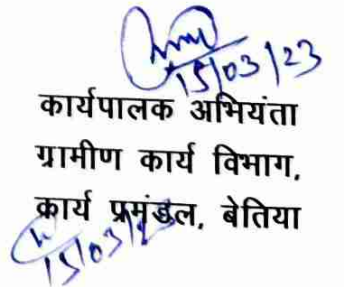 15/03/23
कार्यपालक अभियंता
ग्रामीण कार्य विभाग,
कार्य प्रमंडल, बेतिया
15/03/23